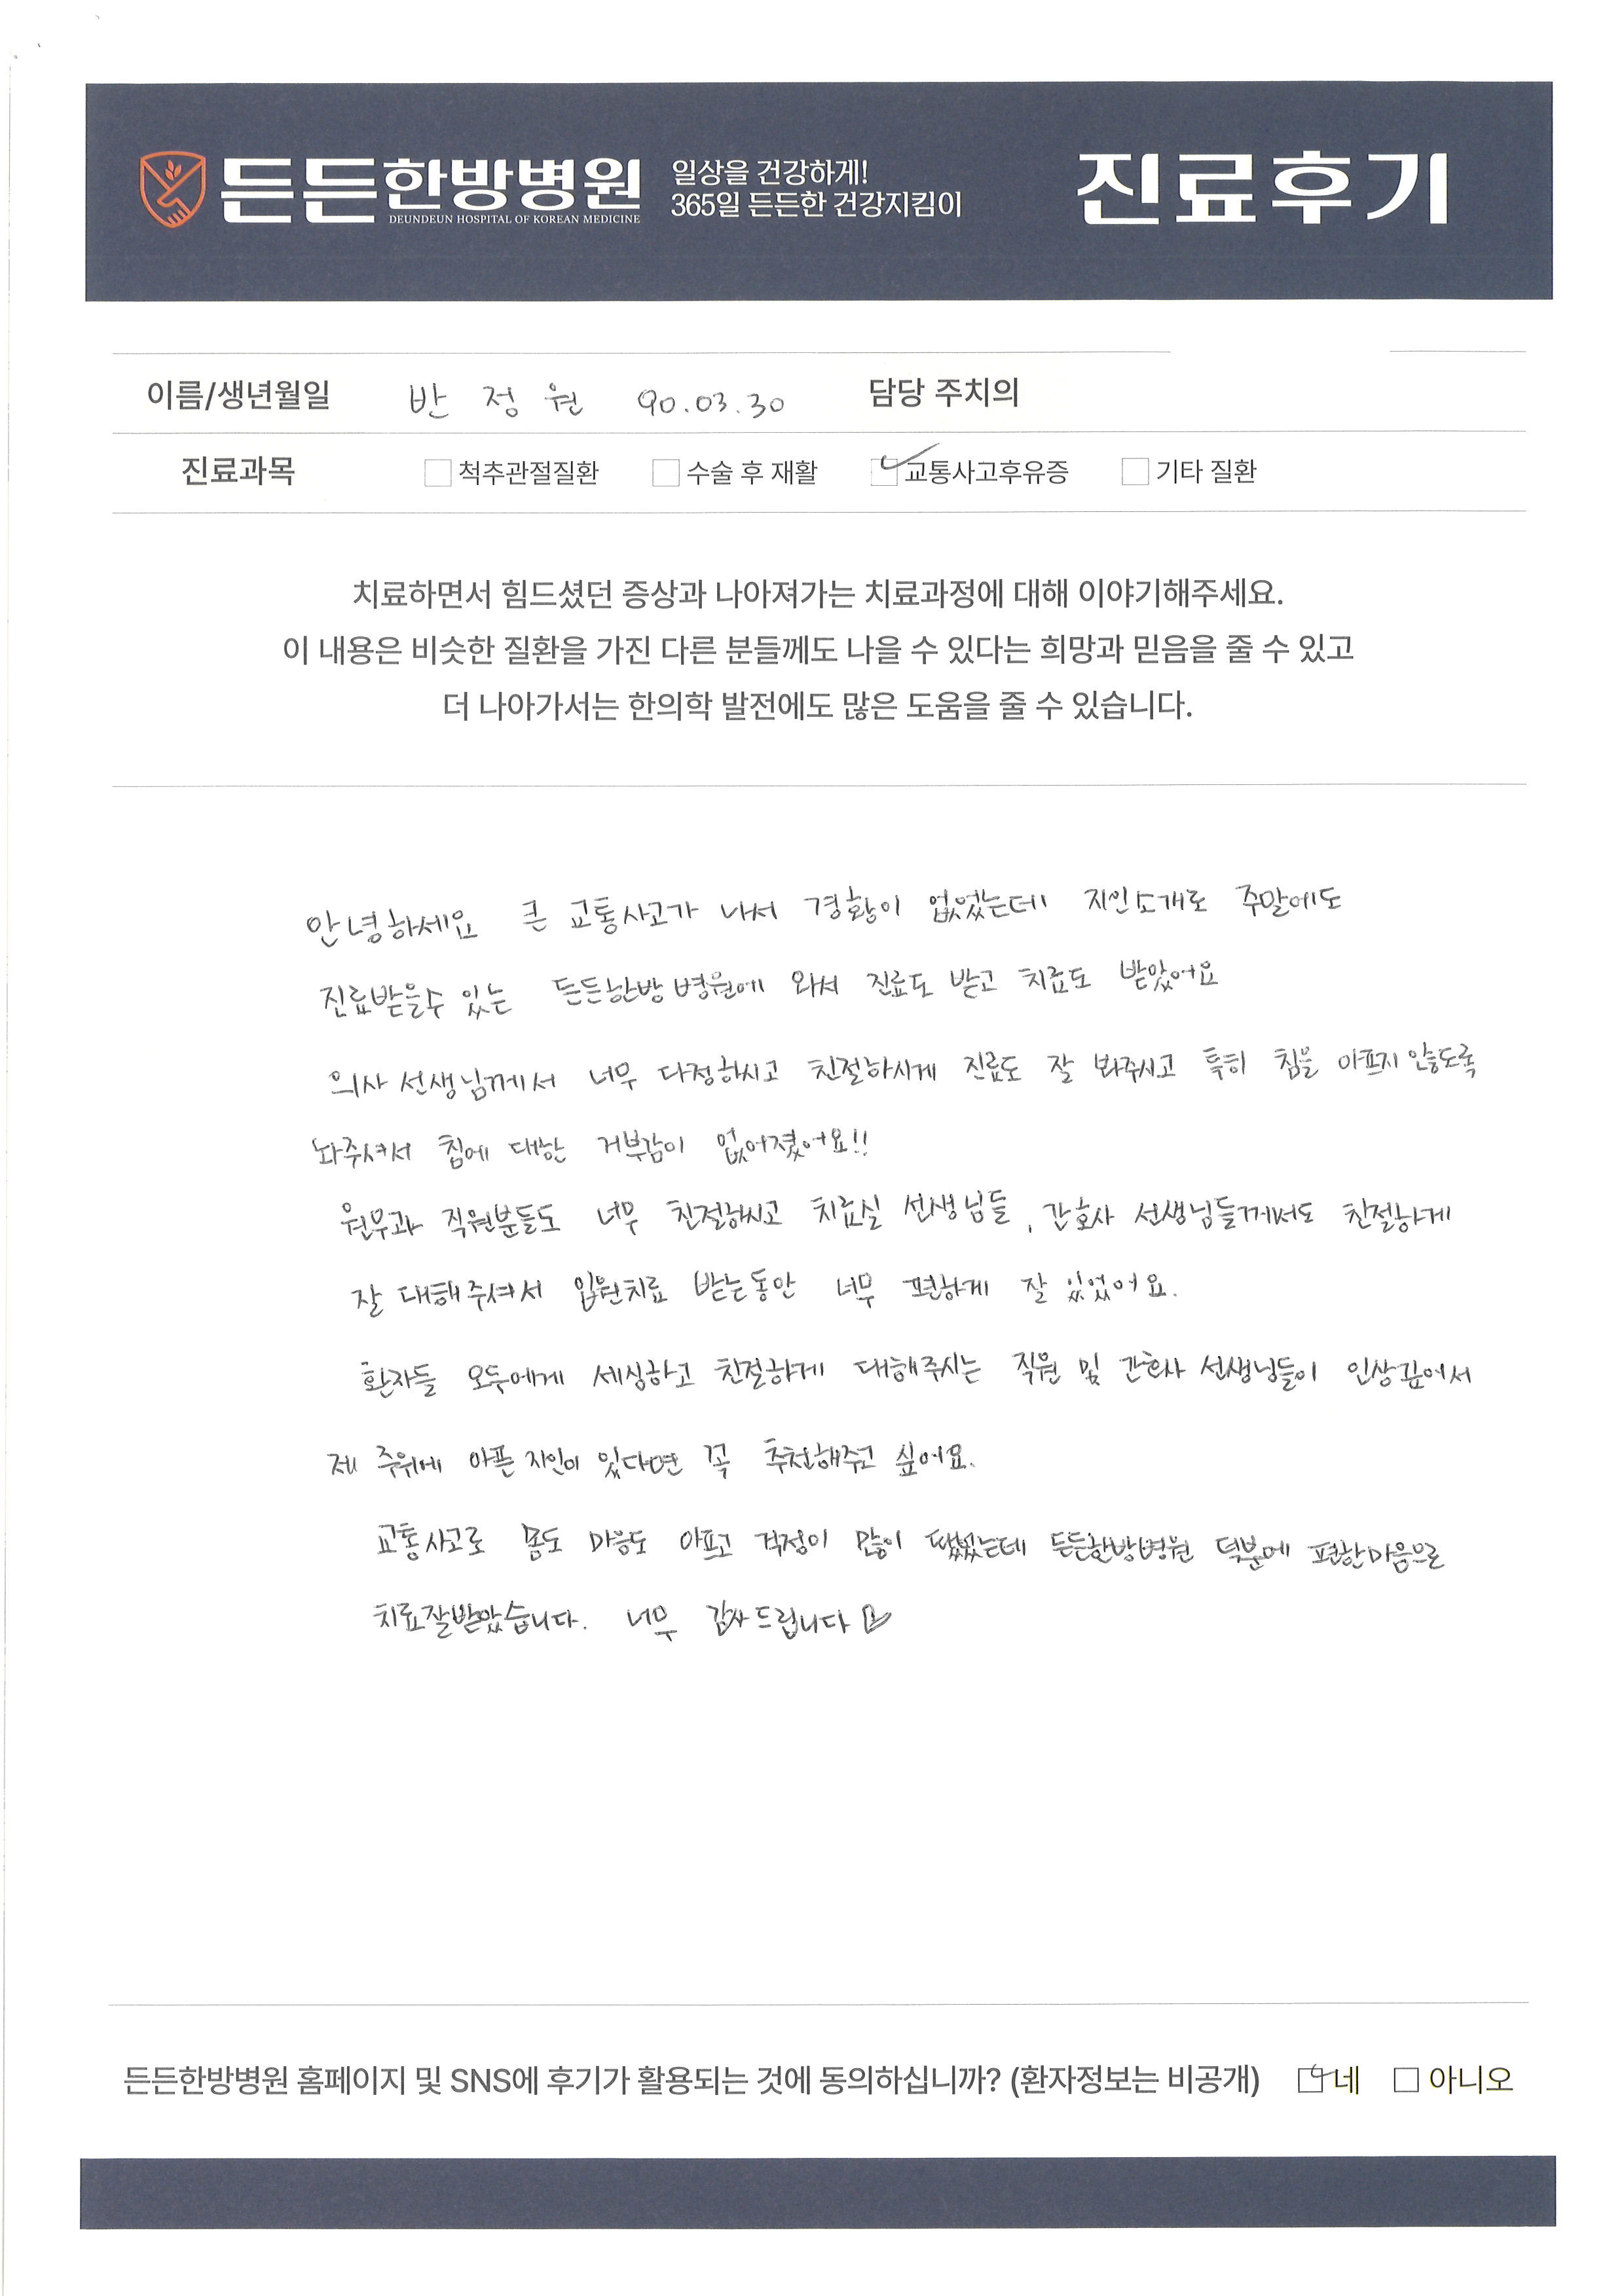 든든한방병원 일상을 건강하게! 진료후기
DEUNDEUN HOSPITAL OF KOREAN MEDICINE 365일 든든한 건강지킴이
이름/생년월일 반정원 90.03.30 담당 주치의
진료과목 척추관절질환 수술 후 재활 교통사고후유증 기타 질환
치료하면서 힘드셨던 증상과 나아져가는 치료과정에 대해 이야기해주세요.
이 내용은 비슷한 질환을 가진 다른 분들께도 나을 수 있다는 희망과 믿음을 줄 수 있고
더 나아가서는 한의학 발전에도 많은 도움을 줄 수 있습니다.
안녕하세요 큰 교통사고가 나서 경황이 없었는데 지인소개로 주말에도
진료받을수 있는 든든한방병원에 와서 진료도 받고 치료도 받았어요
의사 선생님께서 너무 다정하시고 친절하시게 진료도 잘 봐주시고 특히 침을 아프지 않도록
놔주셔서 침에 대한 거부감이 없어졌어요!!
원무과 직원분들도 너무 친절하시고 치료실 선생님들, 간호사 선생님들께서도 친절하게
잘 대해주셔서 입원치료 받는동안 너무 편하게 잘 있었어요.
환자들 모두에게 세심하고 친절하게 대해주시는 직원 및 간호사 선생님들이 인상깊어서
제 주위에 아픈 지인이 있다면 꼭 추천해주고 싶어요.
교통사고로 몸도 마음도 아프고 걱정이 많이 든든한방병원 덕분에 편한마음으로
치료잘받았습니다. 너무 감사드립니다 ♡
든든한방병원 홈페이지 및 SNS에 후기가 활용되는 것에 동의하십니까? (환자정보는 비공개) 네 아니오